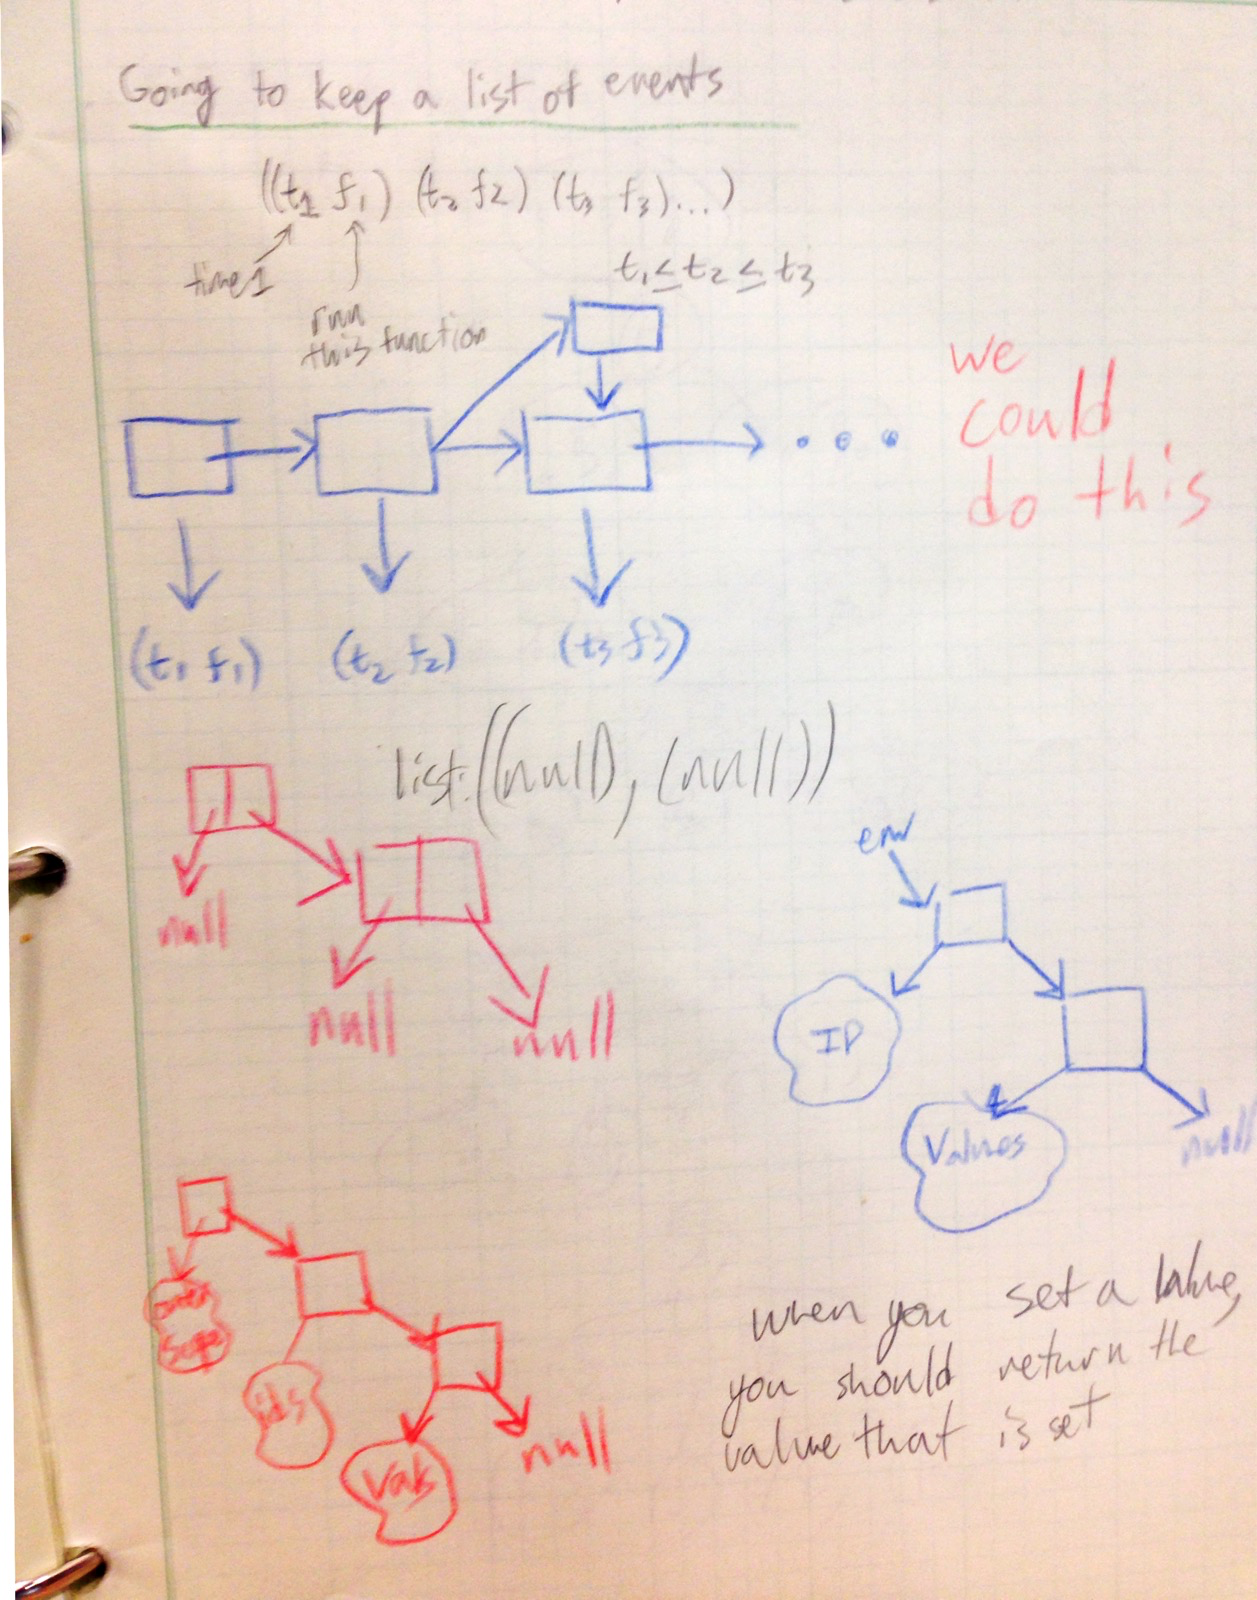 Going to keep a list of events
((t1 f1) (t2 f2) (t3 f3)...)
time1
run
this function
t1 ≤ t2 ≤ t3
we
could
do this
(t1 f1) (t2 f2) (t3 f3)
list:((null), (null))
null
null null
env
ID
Values
null
outer
scope
ids
vals
null
when you set a value,
you should return the
value that is set